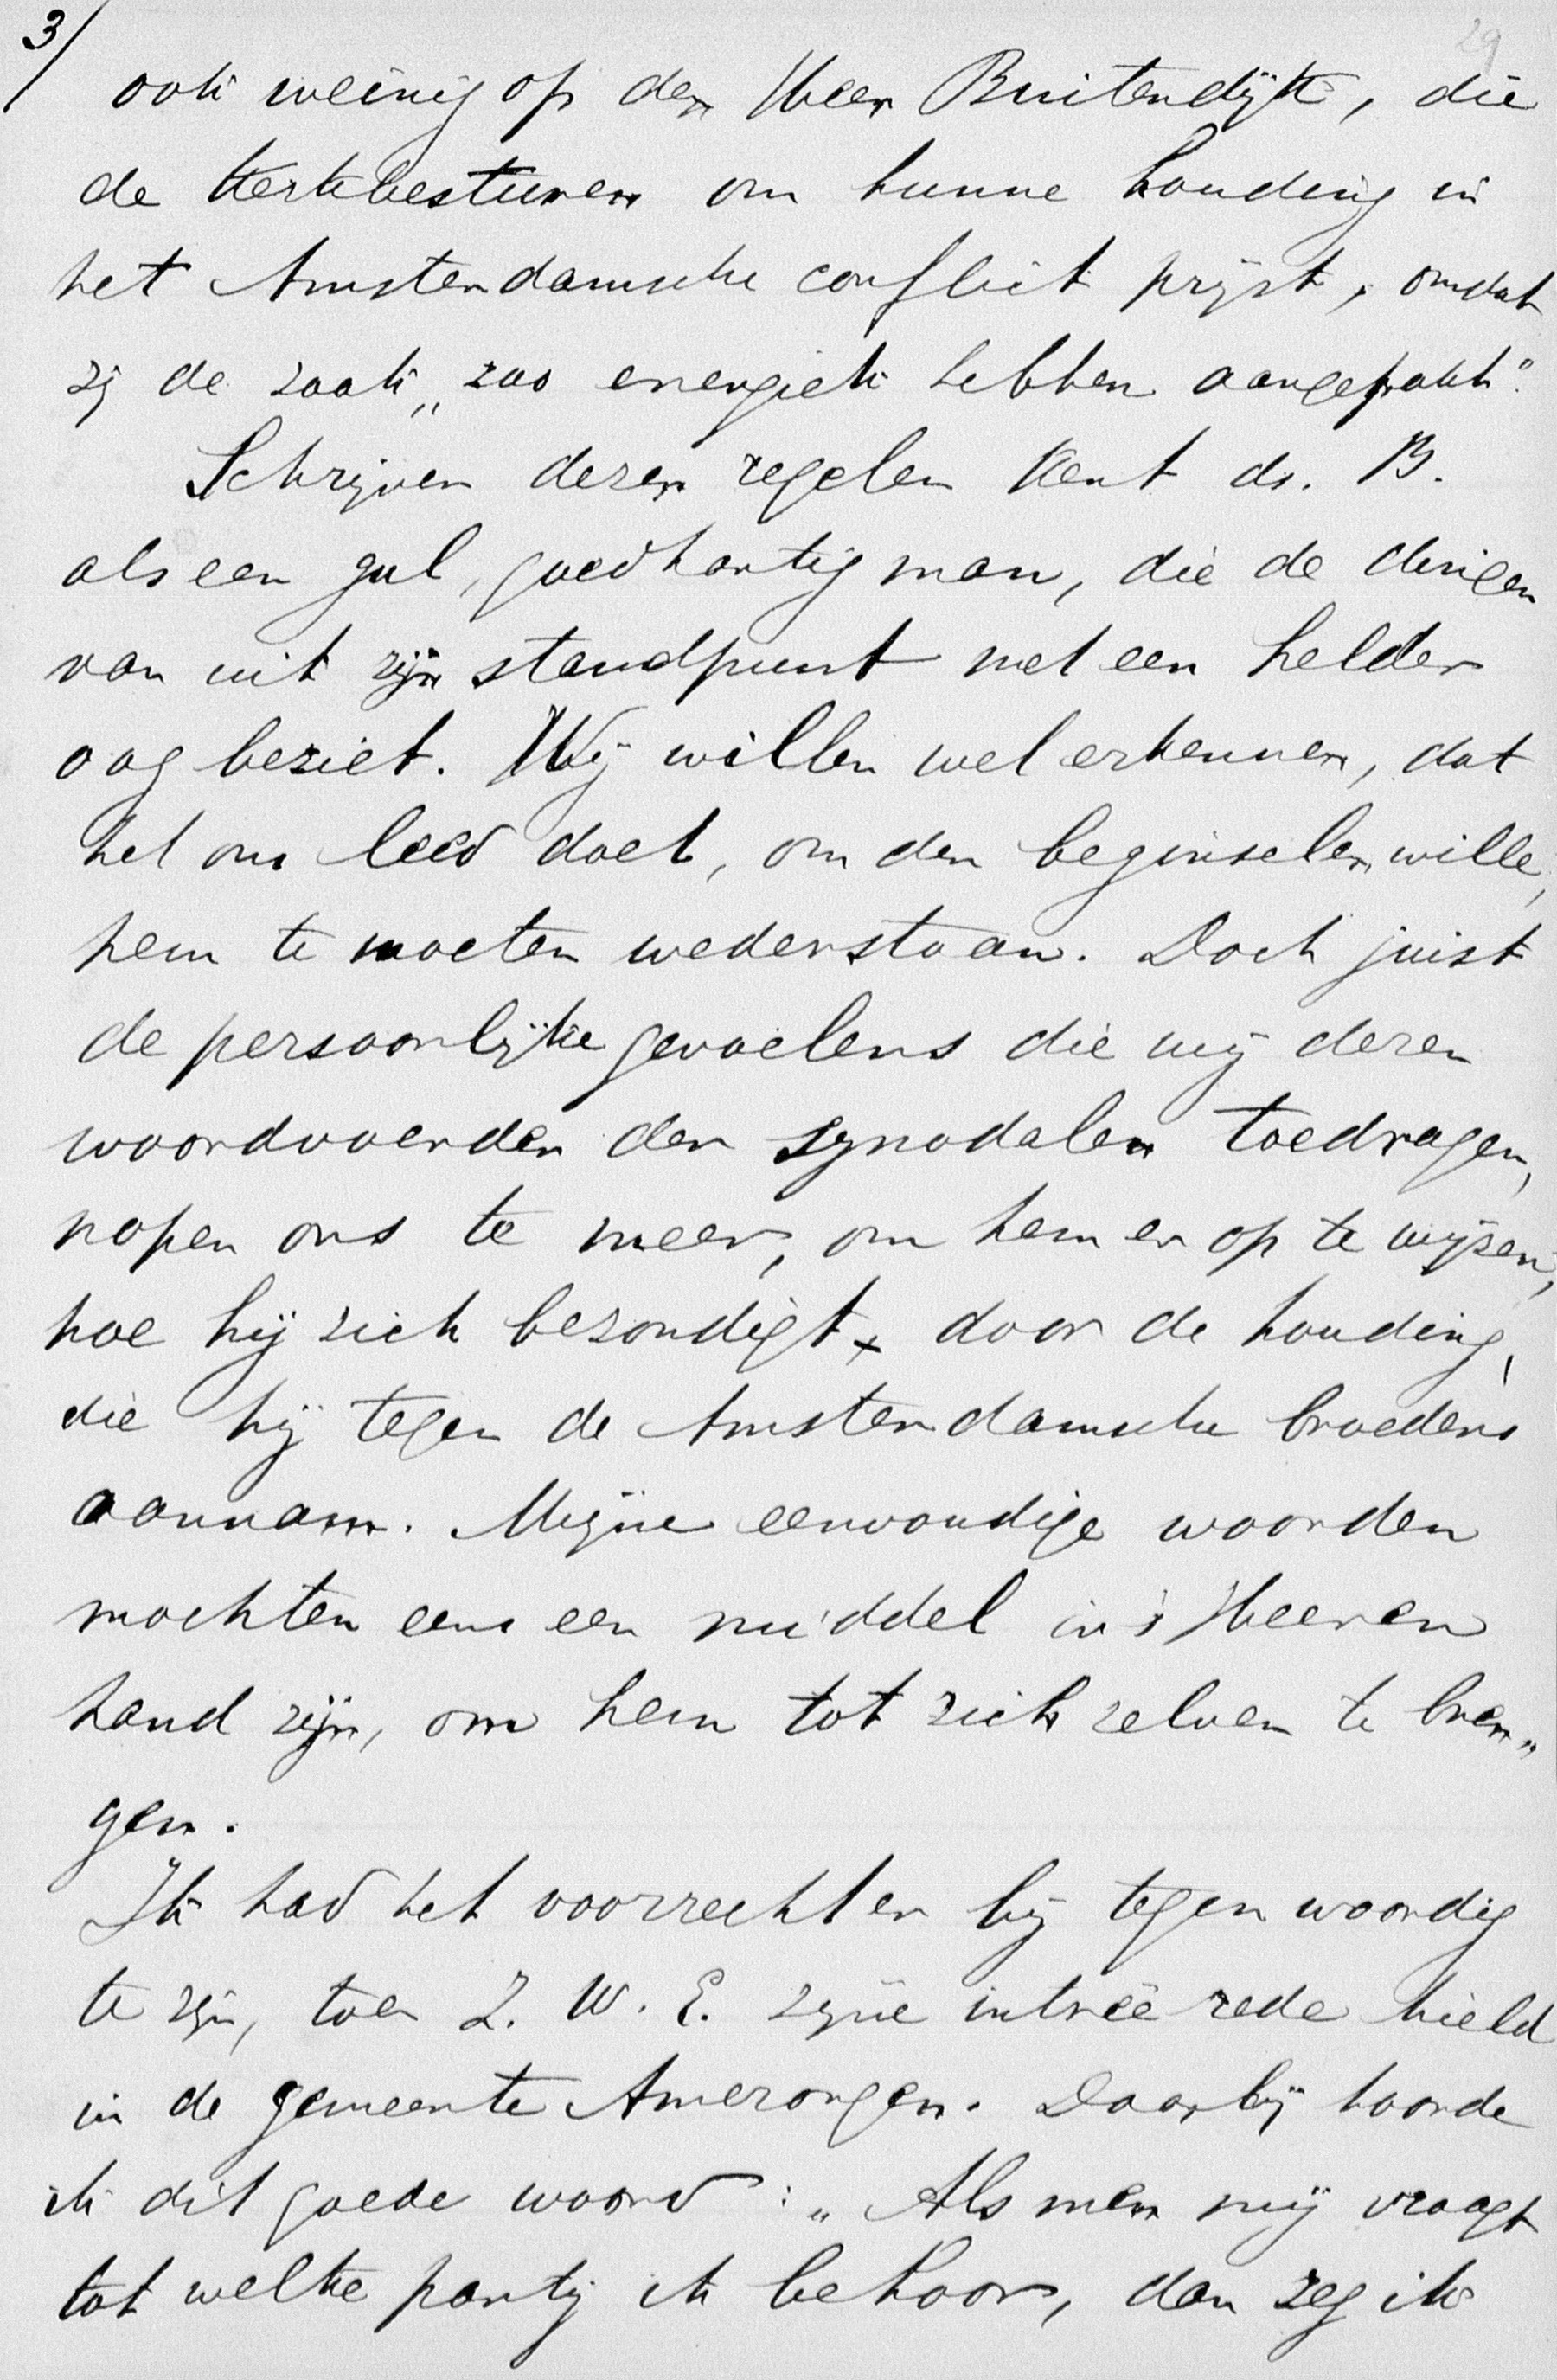 3/
29
ook weinig op den Heer Buitendijk, die
de Kerkbesturen om hunne houding in
het Amsterdamsche conflict prijst, omdat
zij de zaak „zoo energiek hebben aangepakt".
Schrijver dezer regelen kent ds. B.
als een gul, goedhartig man, die de dingen
van uit zijn standpunt met een helder
oog beziet. Wij willen wel erkennen, dat
het ons leed doet, om den beginselen wille,
hem te moeten wederstaan. Doch juist
de persoonlijke gevoelens die wij dezen
woordvoerder der synodalen toedragen,
nopen ons te meer, om hem er op te wijzen,
hoe hij zich bezondigt x door de houding,
die hij tegen de Amsterdamsche broeders
aannam. Mijne eenvoudige woorden
mochten eens een middel in 's Heeren
hand zijn, om hem tot zich zelven te bren„
gen.
Ik had het voorrecht er bij tegenwoordig
te zijn, toen Z. W. E. zijne intreê rede hield
in de gemeente Amerongen. Daarbij hoorde
ik dit goede woord: „Als men mij vraagt
tot welke partij ik behoor, dan zeg ik